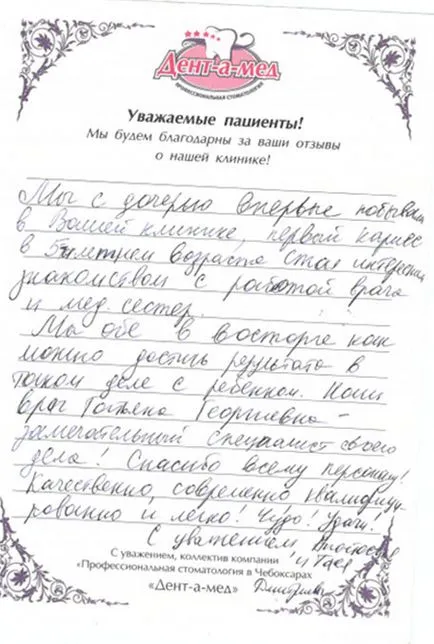 Дент-а-мед
ПРОФЕССИОНАЛЬНАЯ СТОМАТОЛОГИЯ
Уважаемые пациенты!
Мы будем благодарны за ваши отзывы
о нашей клинике!
Мы с дочерью впервые побывали
в Вашей клинике, первый кариес
в 5илетнем возрасте стал интересным
знакомством с работой врача
и мед. сестер.
Мы обе в восторге как
можно достичь результата в
таком деле с ребенком. Наш
врач Татьяна Георгиевна -
замечательный специалист своего
дела! Спасибо всему персоналу!
Качественно, современно квалифици-
рованно и легко! Чудо! Удачи!
С уважением
С уважением, коллектив компании
«Профессиональная стоматология в Чебоксарах
«Дент-а-мед»